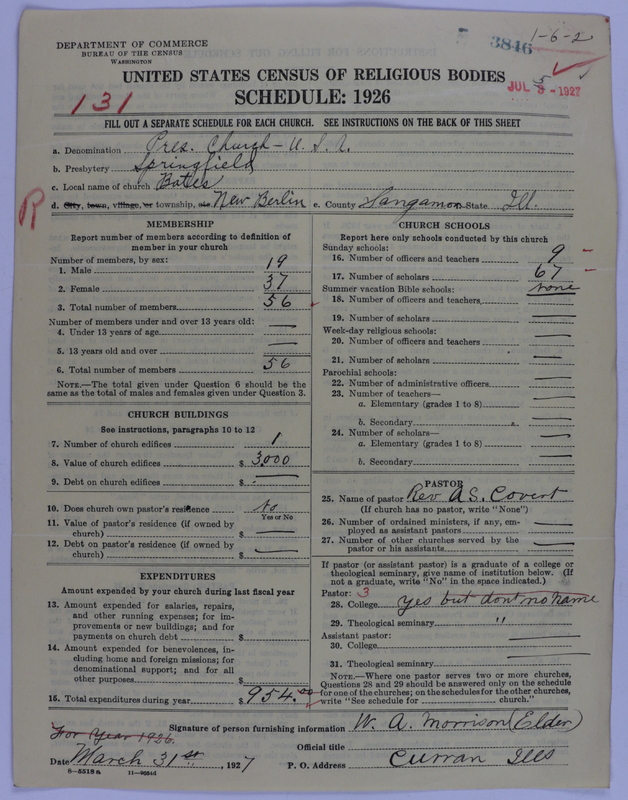 1-6-2
3846
DEPARTMENT OF COMMERCE
BUREAU OF THE CENSUS
WASHINGTON
UNITED STATES CENSUS OF RELIGIOUS BODIES
JUL 5 1927
131
SCHEDULE: 1926
FILL OUT A SEPARATE SCHEDULE FOR EACH CHURCH. SEE INSTRUCTIONS ON THE BACK OF THIS SHEET
a. Denomination Pres. Church - U.S.A.
b. Presbytery Springfield
c. Local name of church Bates
R
d. City, town, village, or township, etc New Berlin e. County Sangamon State Ill.
MEMBERSHIP
Report number of members according to definition of
member in your church
Number of members, by sex:
1. Male 19
2. Female 37
3. Total number of members 56
Number of members under and over 13 years old:
4. Under 13 years of age —
5. 13 years old and over —
6. Total number of members 56
NOTE.—The total given under Question 6 should be the
same as the total of males and females given under Question 3.
CHURCH BUILDINGS
See instructions, paragraphs 10 to 12
7. Number of church edifices 1
8. Value of church edifices $ 3,000
9. Debt on church edifices $ —
10. Does church own pastor's residence No
Yes or No
11. Value of pastor's residence (if owned by
church) $ —
12. Debt on pastor's residence (if owned by
church) $ —
EXPENDITURES
Amount expended by your church during last fiscal year
13. Amount expended for salaries, repairs,
and other running expenses; for im-
provements or new buildings; and for
payments on church debt $
14. Amount expended for benevolences, in-
cluding home and foreign missions; for
denominational support; and for all
other purposes $
15. Total expenditures during year $ 954.00
CHURCH SCHOOLS
Report here only schools conducted by this church
Sunday schools:
16. Number of officers and teachers 9
17. Number of scholars 67
Summer vacation Bible schools: none
18. Number of officers and teachers
19. Number of scholars —
Week-day religious schools:
20. Number of officers and teachers —
21. Number of scholars —
Parochial schools:
22. Number of administrative officers —
23. Number of teachers—
a. Elementary (grades 1 to 8) —
b. Secondary —
24. Number of scholars—
a. Elementary (grades 1 to 8) —
b. Secondary —
PASTOR
25. Name of pastor Rev A S. Covert
(If church has no pastor, write "None")
26. Number of ordained ministers, if any, em-
ployed as assistant pastors —
27. Number of other churches served by the
pastor or his assistants —
If pastor (or assistant pastor) is a graduate of a college or
theological seminary, give name of institution below. (If
not a graduate, write "No" in the space indicated.)
Pastor: 3
28. College yes but dont no name
29. Theological seminary "
Assistant pastor:
30. College —
31. Theological seminary —
NOTE.—Where one pastor serves two or more churches,
Questions 28 and 29 should be answered only on the schedule
for one of the churches; on the schedules for the other churches,
write "See schedule for church."
Signature of person furnishing information W. A. Morrison (Elder)
For Year 1926.
Official title
Date March 31st, 1927 P. O. Address Curran Ills
6—5518a 11—9554d